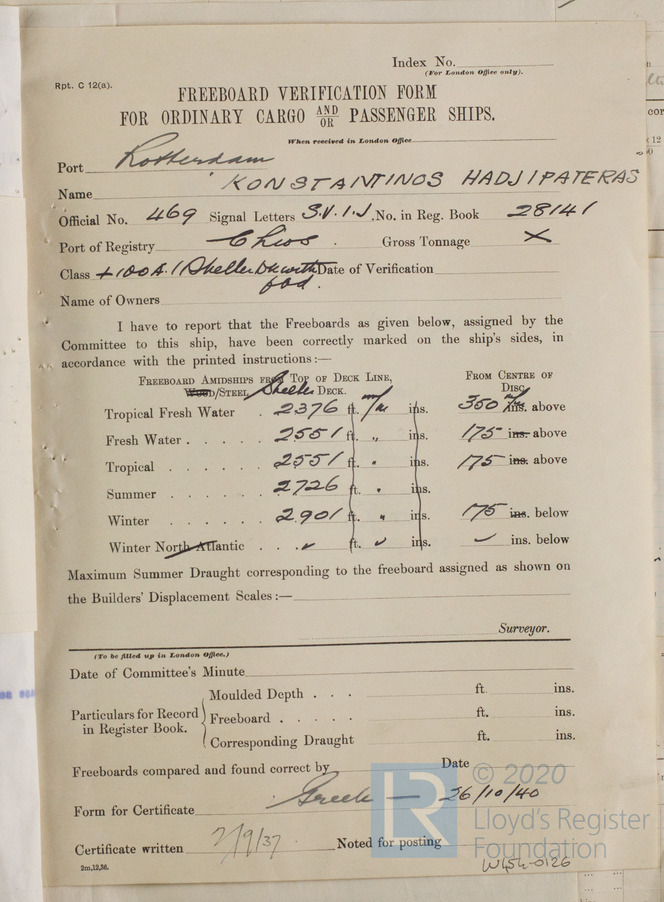 Index No.
(For London Office only).
Rpt. C 12(a).
FREEBOARD VERIFICATION FORM
FOR ORDINARY CARGO AND/OR PASSENGER SHIPS.
When received in London Office
Port Rotterdam
Name KONSTANTINOS HADJIPATERAS
Official No. 469 Signal Letters S.V.I.J. No. in Reg. Book 28141
Port of Registry Chios. Gross Tonnage X
Class +100A.1 Shelter Dk with Date of Verification
fbd.
Name of Owners
I have to report that the Freeboards as given below, assigned by the
Committee to this ship, have been correctly marked on the ship's sides, in
accordance with the printed instructions:—
FREEBOARD AMIDSHIPS FROM TOP OF DECK LINE, FROM CENTRE OF
WOOD/STEEL Shelter DECK. DISC.
Tropical Fresh Water . 2376 ft. m/m ins. 350 m/m ins. above
Fresh Water . . . . 2551 ft. " ins. 175 ins. above
Tropical . . . . . . 2551 ft. " ins. 175 ins. above
Summer . . . . . . 2726 ft. " ins.
Winter . . . . . . 2901 ft. " ins. 175 ins. below
Winter North Atlantic . . . ft. ins. ins. below
Maximum Summer Draught corresponding to the freeboard assigned as shown on
the Builders' Displacement Scales:—
Surveyor.
(To be filled up in London Office.)
Date of Committee's Minute
Particulars for Record in Register Book.
Moulded Depth . . . ft. ins.
Freeboard . . . . . ft. ins.
Corresponding Draught ft. ins.
Freeboards compared and found correct by Date
Form for Certificate Greek — 26/10/40
Certificate written 2/9/37 Noted for posting
2m,12,36.
LR
© 2020
Lloyd's Register
Foundation
W454-0126